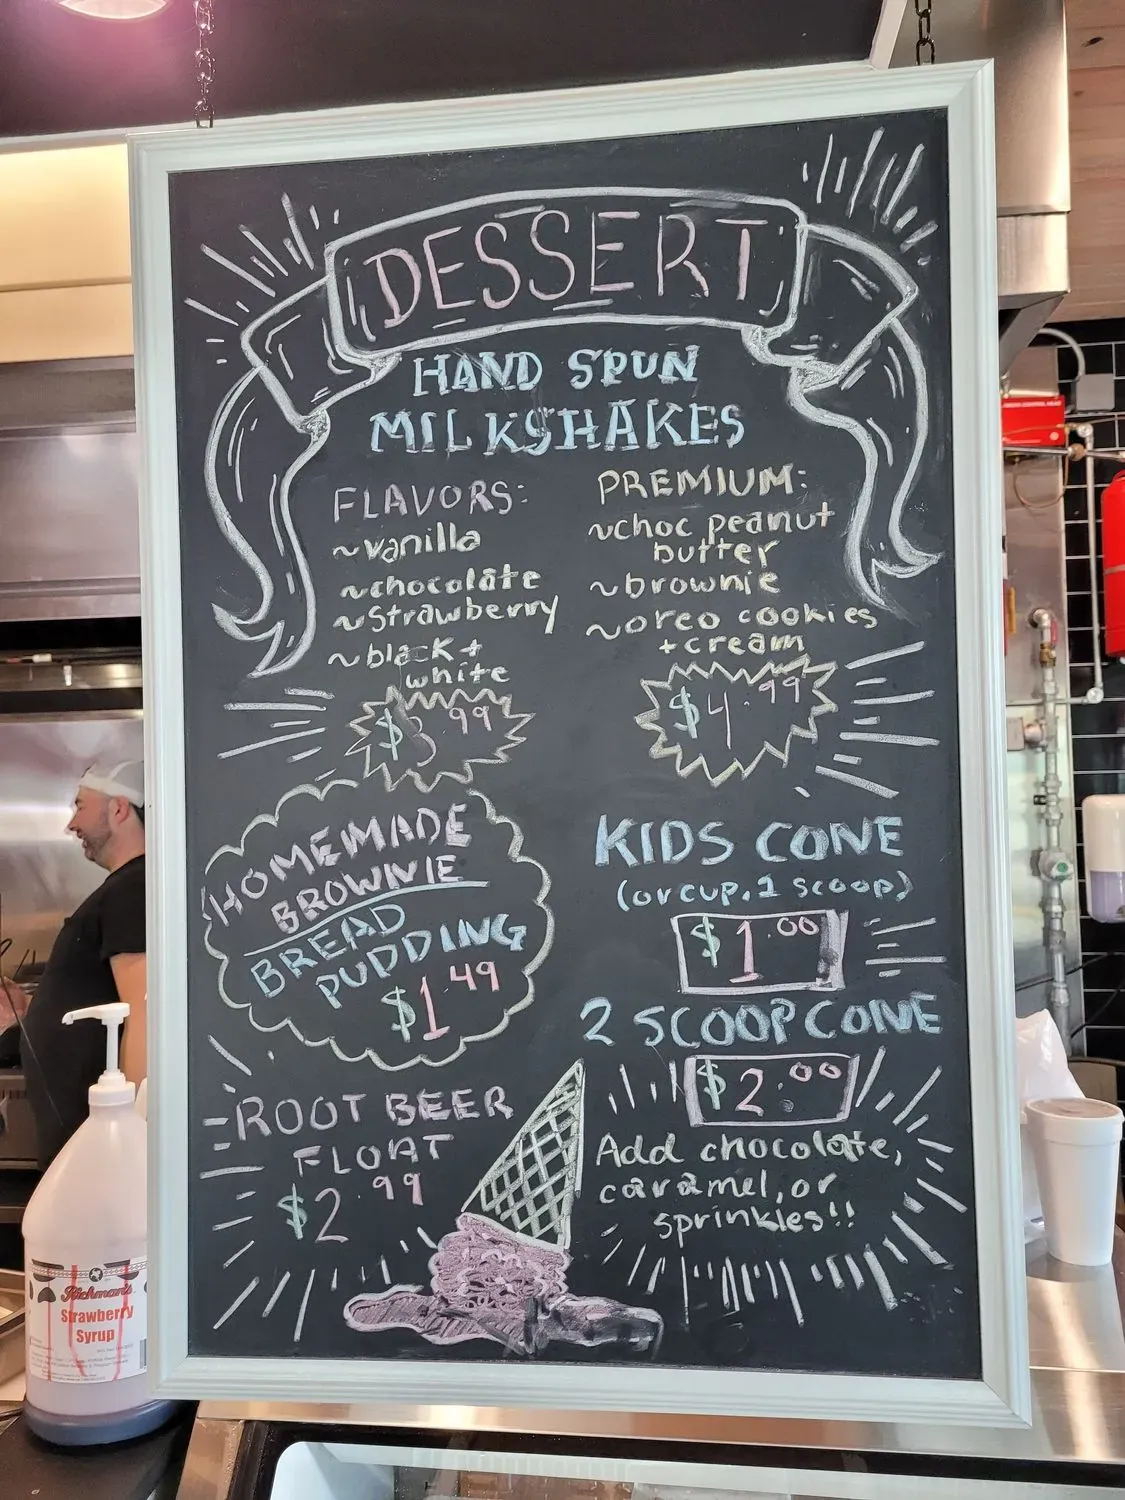 DESSERT
HAND SPUN
MILKSHAKES
FLAVORS:
~vanilla
~chocolate
~strawberry
~black +
white
$3.99
PREMIUM:
~choc peanut
butter
~brownie
~oreo cookies
+cream
$4.99
HOMEMADE
BROWNIE
BREAD
PUDDING
$1.49
KIDS CONE
(or cup, 1 scoop)
$1.00
2 SCOOP CONE
$2.00
Add chocolate,
caramel, or
sprinkles!!
ROOT BEER
FLOAT
$2.99
Richman's
Strawberry
Syrup